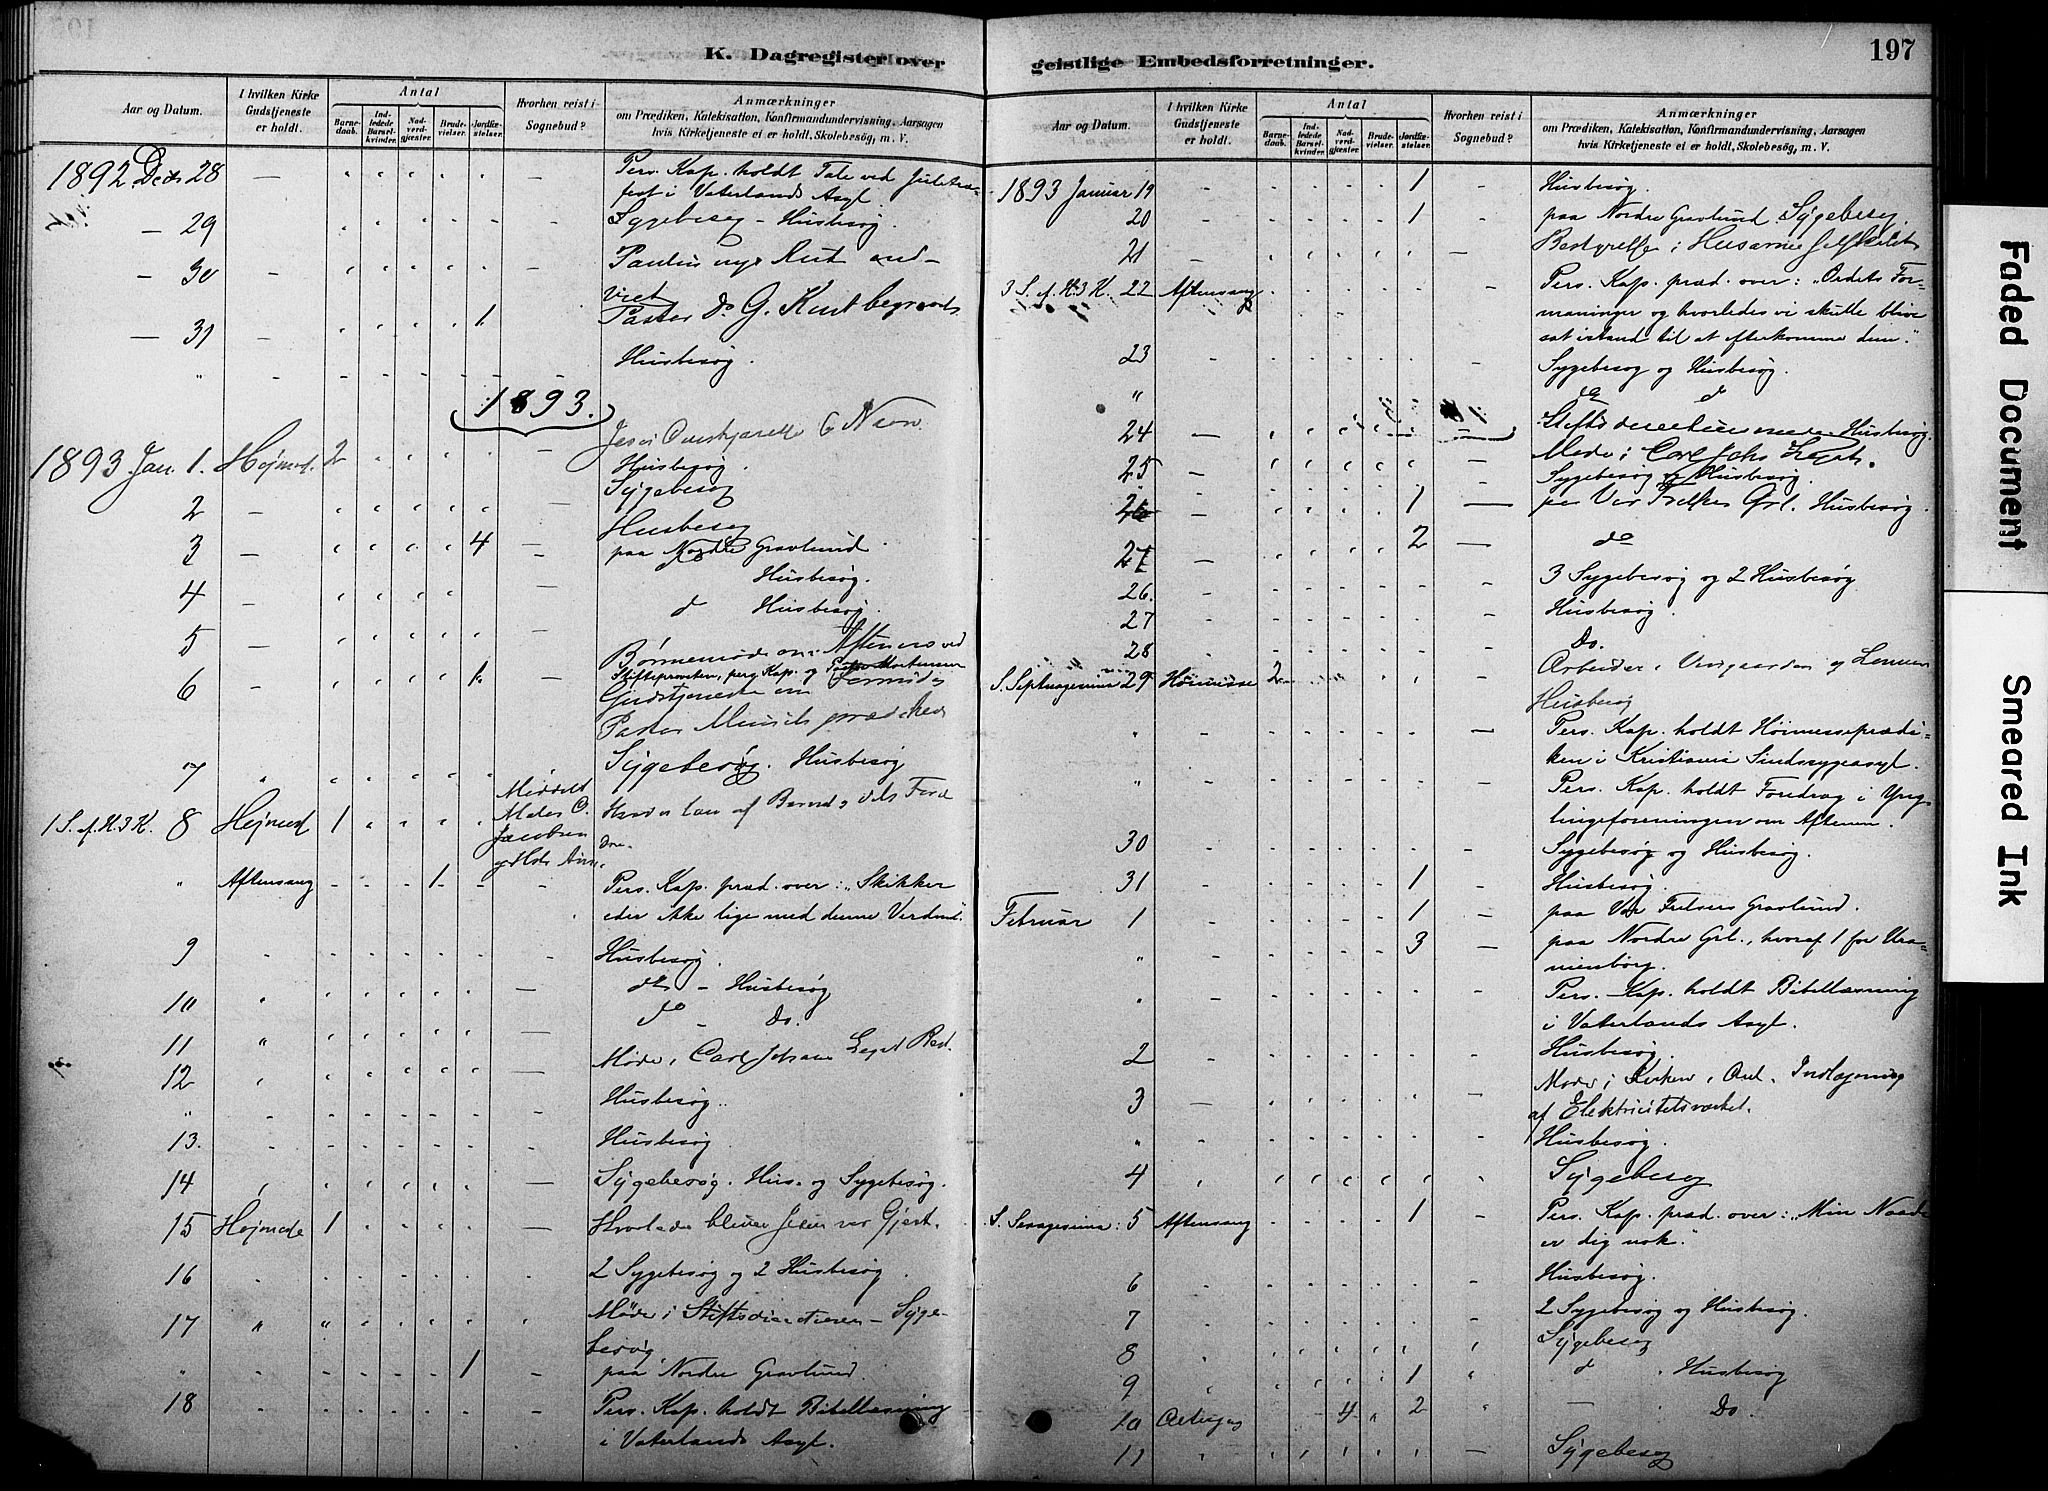 K. Dagregister over geistlige Embedsforretninger.
197
Aar og Datum.
I hvilken Kirke Gudstjeneste er holdt.
Antal
Barnedaab.
Indledede Barselkvinder.
Nadverdgjæster.
Brudevielser.
Jordfæstelser.
Hvorhen reist i Sognebud?
Anmærkninger
om Prædiken, Katekisation, Konfirmandundervisning, Aarsagen
hvis Kirketjeneste ei er holdt, Skolebesøg, m. V.
1892 Decbr 28 Pers. Kap. holdt Tale ved Juletræ-
fest i Vaterlands Asyl.
29 Sygebesøg - Husbesøg.
30
31 1
Husbesøg.
1893.
1893 Jan. 1. Højmes. 2
Husbesøg.
2 Sygebesøg
Husbesøg
3 4 paa Nordre Gravlund
Husbesøg.
4 Husbesøg.
5
6 1 Stiftsprovsten, pers. Kap. og Pastor Mortensen
7 Sygebesøg. Husbesøg
1 S. e. H. 3 K. 8 Højmes 1
" Aftensang 1 Pers. Kap. præd. over: "Skikker
eder ikke lige med denne Verden".
9 Husbesøg.
10 do - Husbesøg
11 do - Do.
12 Møde i Carl Johans Legat Best.
" Husbesøg.
13. Husbesøg
14 Sygebesøg. Hus- og Sygebesøg.
15 Højmesse 1 Hvorledes bliver Jesus vor Gjest.
16 2 Sygebesøg og 2 Husbesøg.
17 Møde i Stiftsdirectionen - Syge-
besøg
" 1 paa Nordre Gravlund.
18 Pers. Kap. holdt Bibellæsning
i Vaterlands Asyl.
Aar og Datum.
I hvilken Kirke Gudstjeneste er holdt.
Antal
Barnedaab.
Indledede Barselkvinder.
Nadverdgjæster.
Brudevielser.
Jordfæstelser.
Hvorhen reist i Sognebud?
Anmærkninger
om Prædiken, Katekisation, Konfirmandundervisning, Aarsagen
hvis Kirketjeneste ei er holdt, Skolebesøg, m. V.
1893 Januar 19 1 Husbesøg.
20 1 paa Nordre Gravlund. Sygebesøg.
21
3 S. e. H. 3 K. 22 Aftensang Pers. Kap. præd. over: "Ordets For-
maninger og hvorledes vi skulle blive
sat istand til at efterkomme dem."
23 Sygebesøg og Husbesøg.
" do
24 Husbesøg.
25 Møde i Carl Johs Legat.
Sygebesøg og Husbesøg.
26 1 paa Vor Frelsers Grl. Husbesøg.
27 2 do
3 Sygebesøg og 2 Husbesøg
26. Husbesøg.
27 Do.
28
S. Septuagesima 29 Høimesse 2 Husbesøg
" Pers. Kap. holdt Høimesseprædi-
ken i Kristiania Sindssygeasyl.
" Pers. Kap. holdt Foredrag i Yng-
lingeforeningen om Aftenen.
30 Sygebesøg og Husbesøg.
31 1 Husbesøg.
Februar 1 1 paa Vor Frelsers Gravlund.
" 3 paa Nordre Grl., hvoraf 1 for Ura-
nienborg.
" Pers. Kap. holdt Bibellæsning
i Vaterlands Asyl.
2 Husbesøg.
3 Møde i Kirken i Anl. Indlægning
af Elektricitetsværket.
" Husbesøg.
4 Sygebesøg
S. Sexagesima: 5 Aftensang 1 Pers. Kap. præd. over: "Min Naade
er dig nok."
6 Husbesøg.
7 2 Sygebesøg og Husbesøg.
8 Sygebesøg
9 1 do Husbesøg
10 Altergang 4 2 Do.
11 Sygebesøg
Faded Document
Smeared Ink